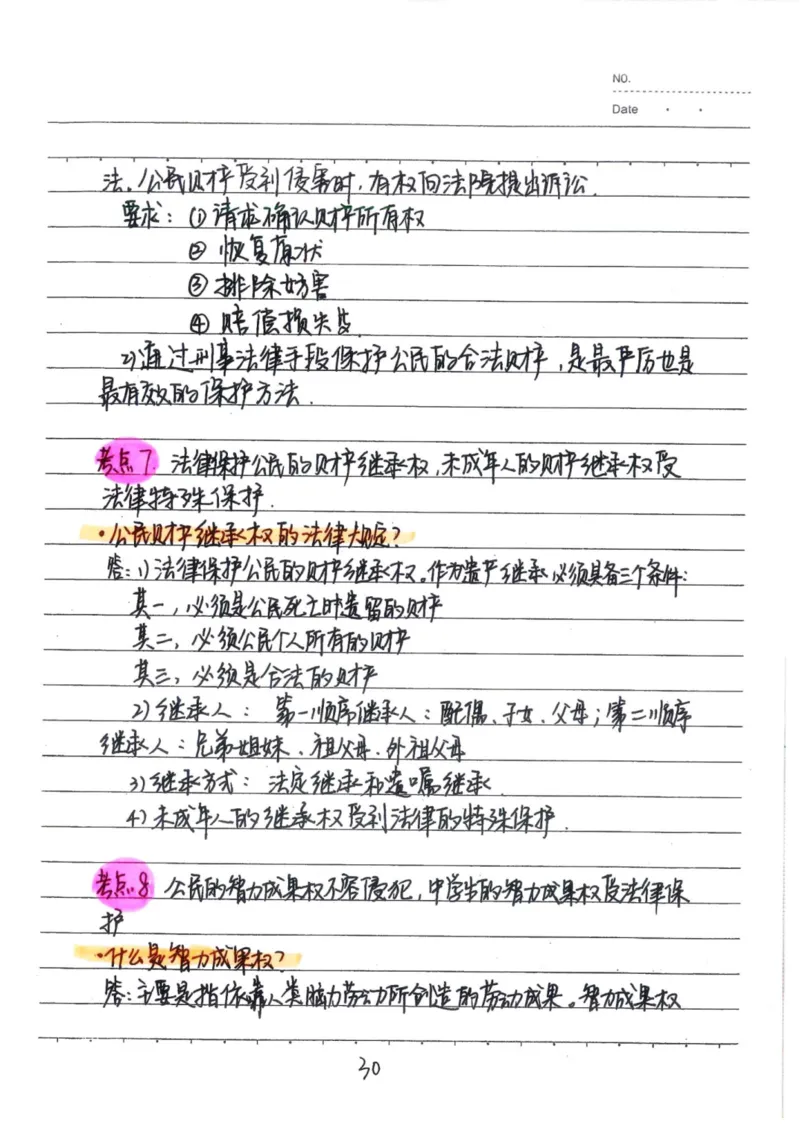 NO.
Date · ·
法。公民财产受到侵害时,有权向法院提出诉讼.
要求: ① 请求确认财产所有权
② 恢复原状
③ 排除妨害
④ 赔偿损失
2)通过刑事法律手段保护公民的合法财产,是最严厉也是
最有效的保护方法.
考点7. 法律保护公民的财产继承权,未成年人的财产继承权受
法律特殊保护.
·公民财产继承权的法律规定?
答:1)法律保护公民的财产继承权。作为遗产继承必须具备三个条件:
其一,必须是公民死亡时遗留的财产
其二,必须公民个人所有的财产
其三,必须是合法的财产
2)继承人: 第一顺序继承人:配偶、子女、父母;第二顺序
继承人:兄弟姐妹、祖父母、外祖父母
3)继承方式: 法定继承和遗嘱继承.
4)未成年人的继承权受到法律的特殊保护.
考点8 公民的智力成果权不容侵犯,中学生的智力成果权受法律保
护
·什么是智力成果权?
答:主要是指依靠人类脑力劳动所创造的劳动成果。智力成果权
30